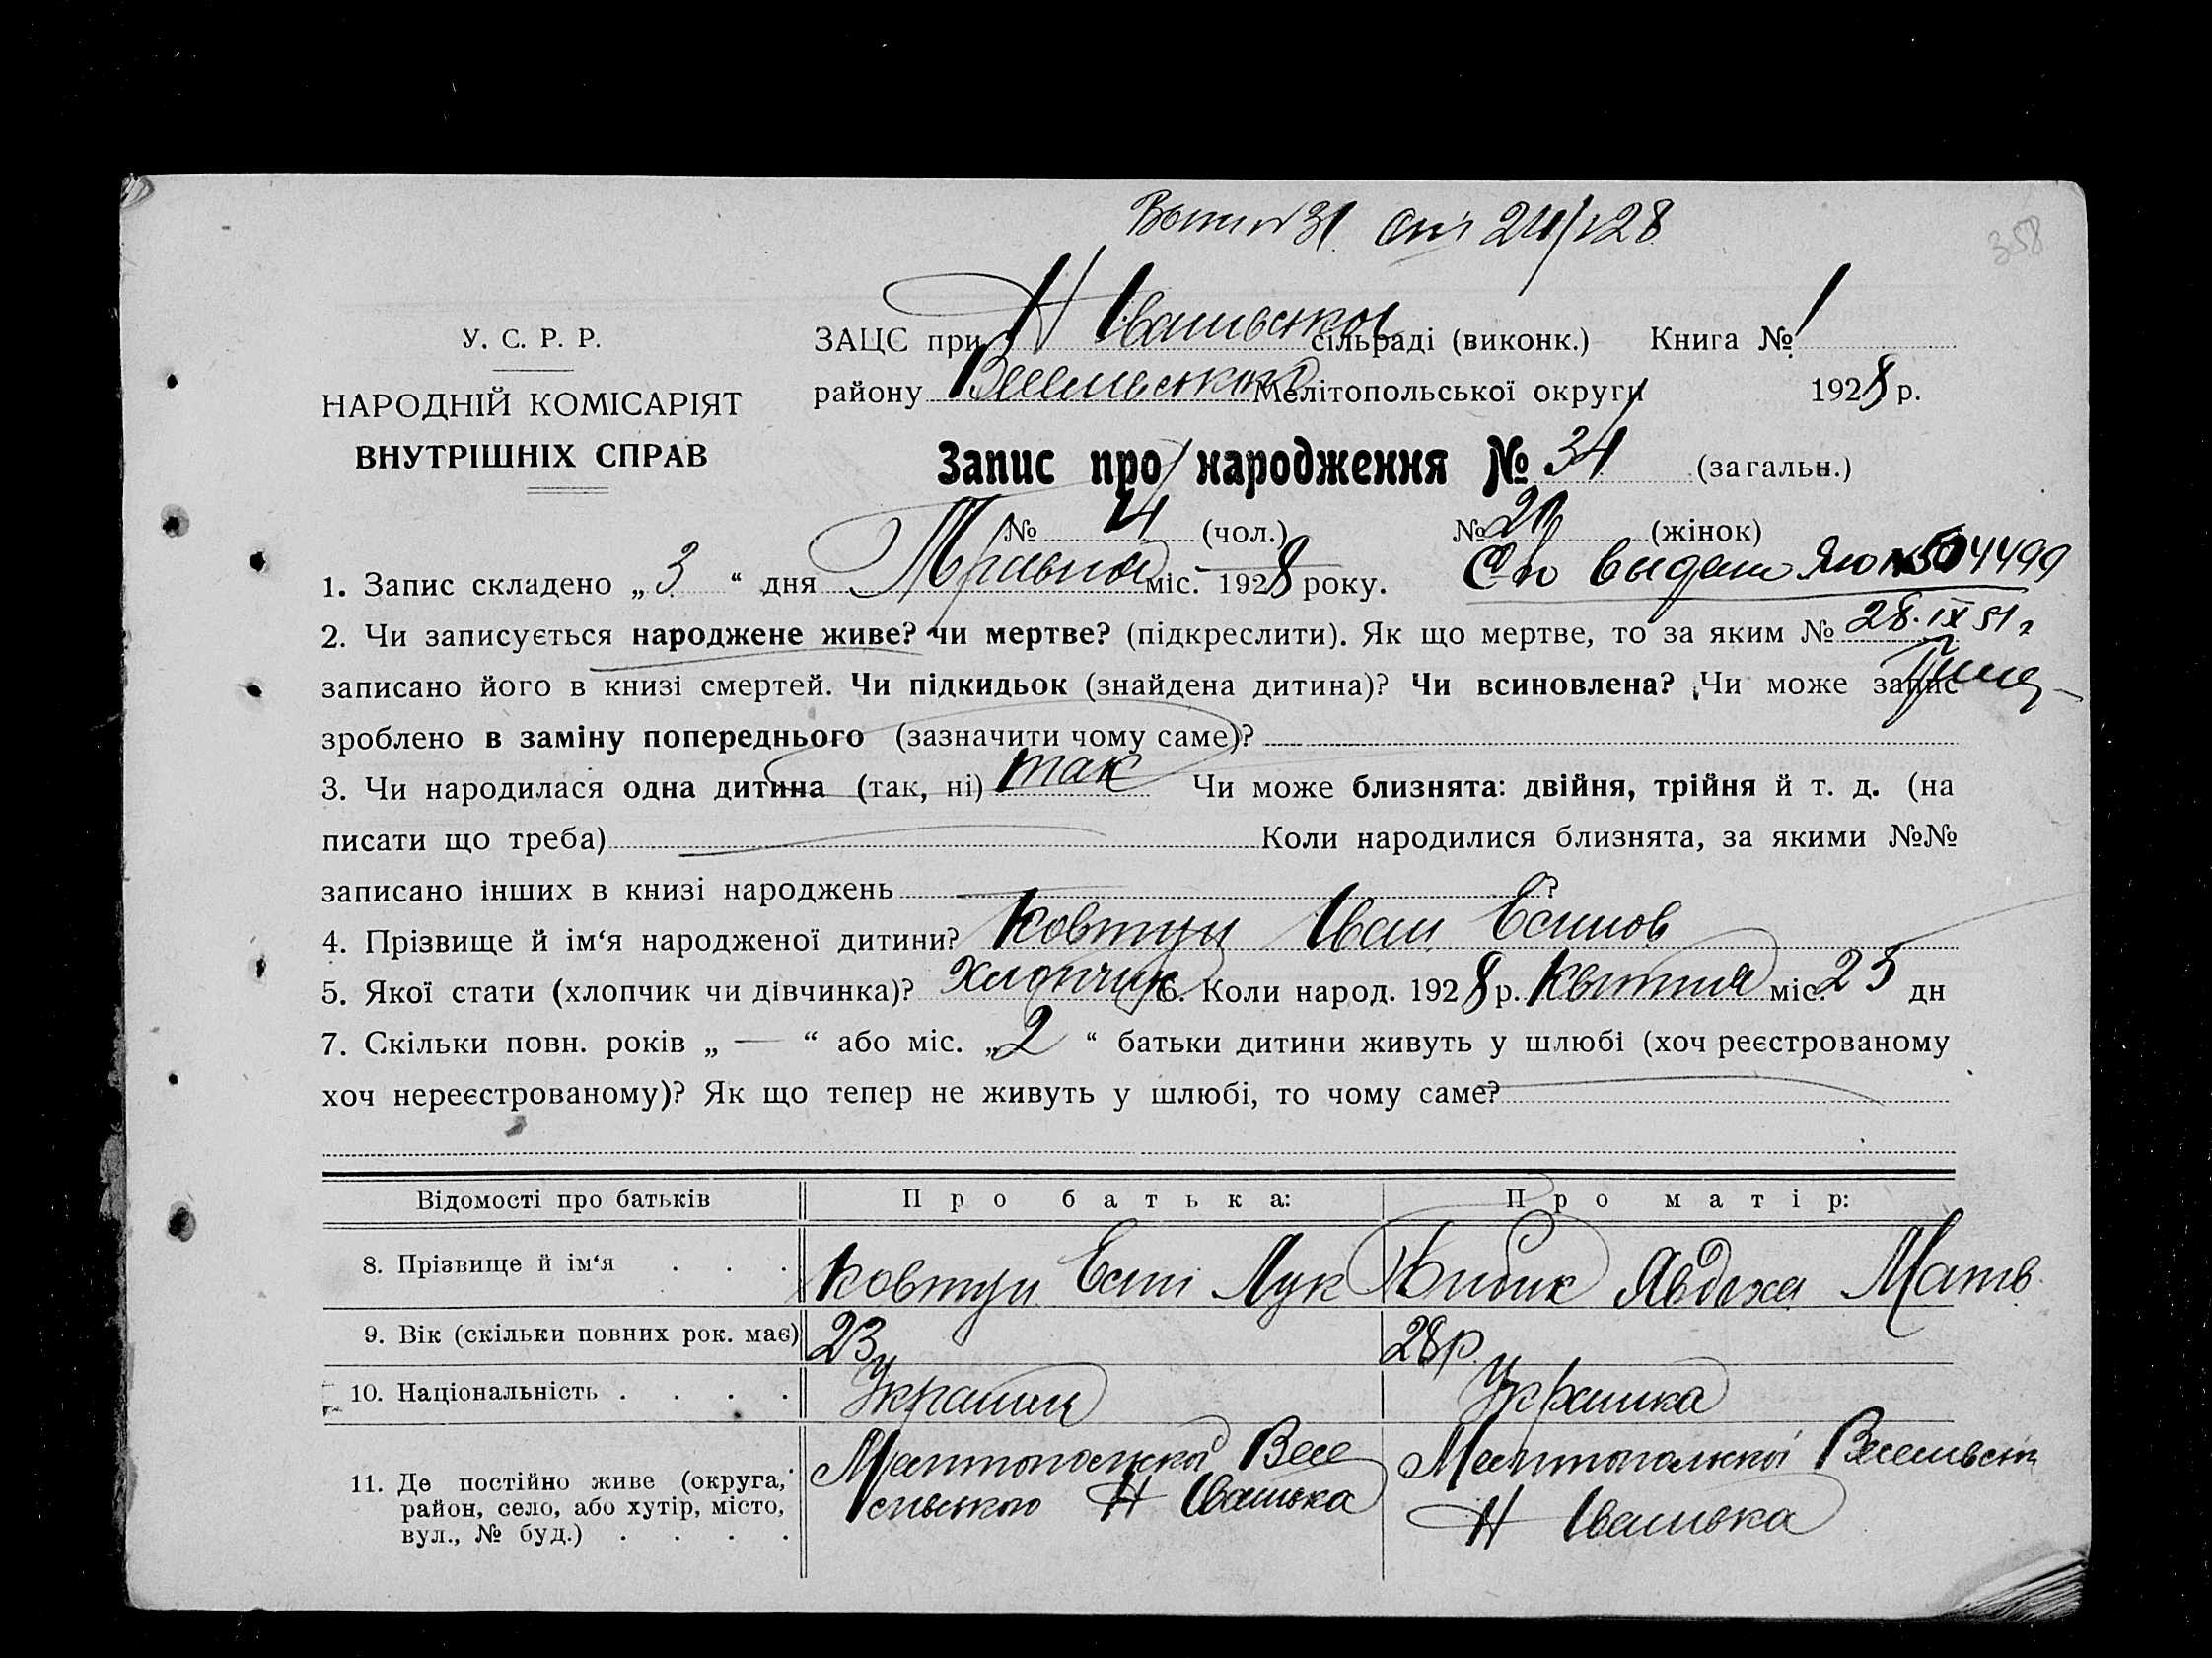 358
У. С. Р. Р.
НАРОДНІЙ КОМІСАРІЯТ
ВНУТРІШНІХ СПРАВ
ЗАЦС при Н Іванівської сільраді (виконк.) Книга № 1
району Веселівського Мелітопольської округи 1928 р.
Запис про народження № 34 (загальн.)
№ 14 (чол.) № 20 (жінок)
1. Запис складено „ 3 “ дня Травня міс. 1928 року.
Св во выдано ЯЮ № 504499
28.IX 51 г
2. Чи записується народжене живе? чи мертве? (підкреслити). Як що мертве, то за яким №
записано його в книзі смертей. Чи підкидьок (знайдена дитина)? Чи всиновлена? Чи може запис
зроблено в заміну попереднього (зазначити чому саме)?
3. Чи народилася одна дитина (так, ні) так Чи може близнята: двійня, трійня й т. д. (на
писати що треба) Коли народилися близнята, за якими №№
записано інших в книзі народжень ?
4. Прізвище й ім‘я народженої дитини? Ковтун Іван Есипов
5. Якої стати (хлопчик чи дівчинка)? Хлопчик 6. Коли народ. 1928 р. Квітня міс. 25 дн
7. Скільки повн. років „ — “ або міс. „ 2 “ батьки дитини живуть у шлюбі (хоч реєстрованому
хоч нереєстрованому)? Як що тепер не живуть у шлюбі, то чому саме?
Відомості про батьків Про батька: Про матір:
8. Прізвище й ім‘я . . . Ковтун Есип Лук Бибик Явдоха Матв.
9. Вік (скільки повних рок. має) 23 28 р.
10. Національність . . . . Українец Українка
11. Де постійно живе (округа, район, село, або хутір, місто, вул., № буд.) . . . .
Мелітопольської Веселівського Н Іванівка
Мелітопольської Веселівськ Н Іванівка